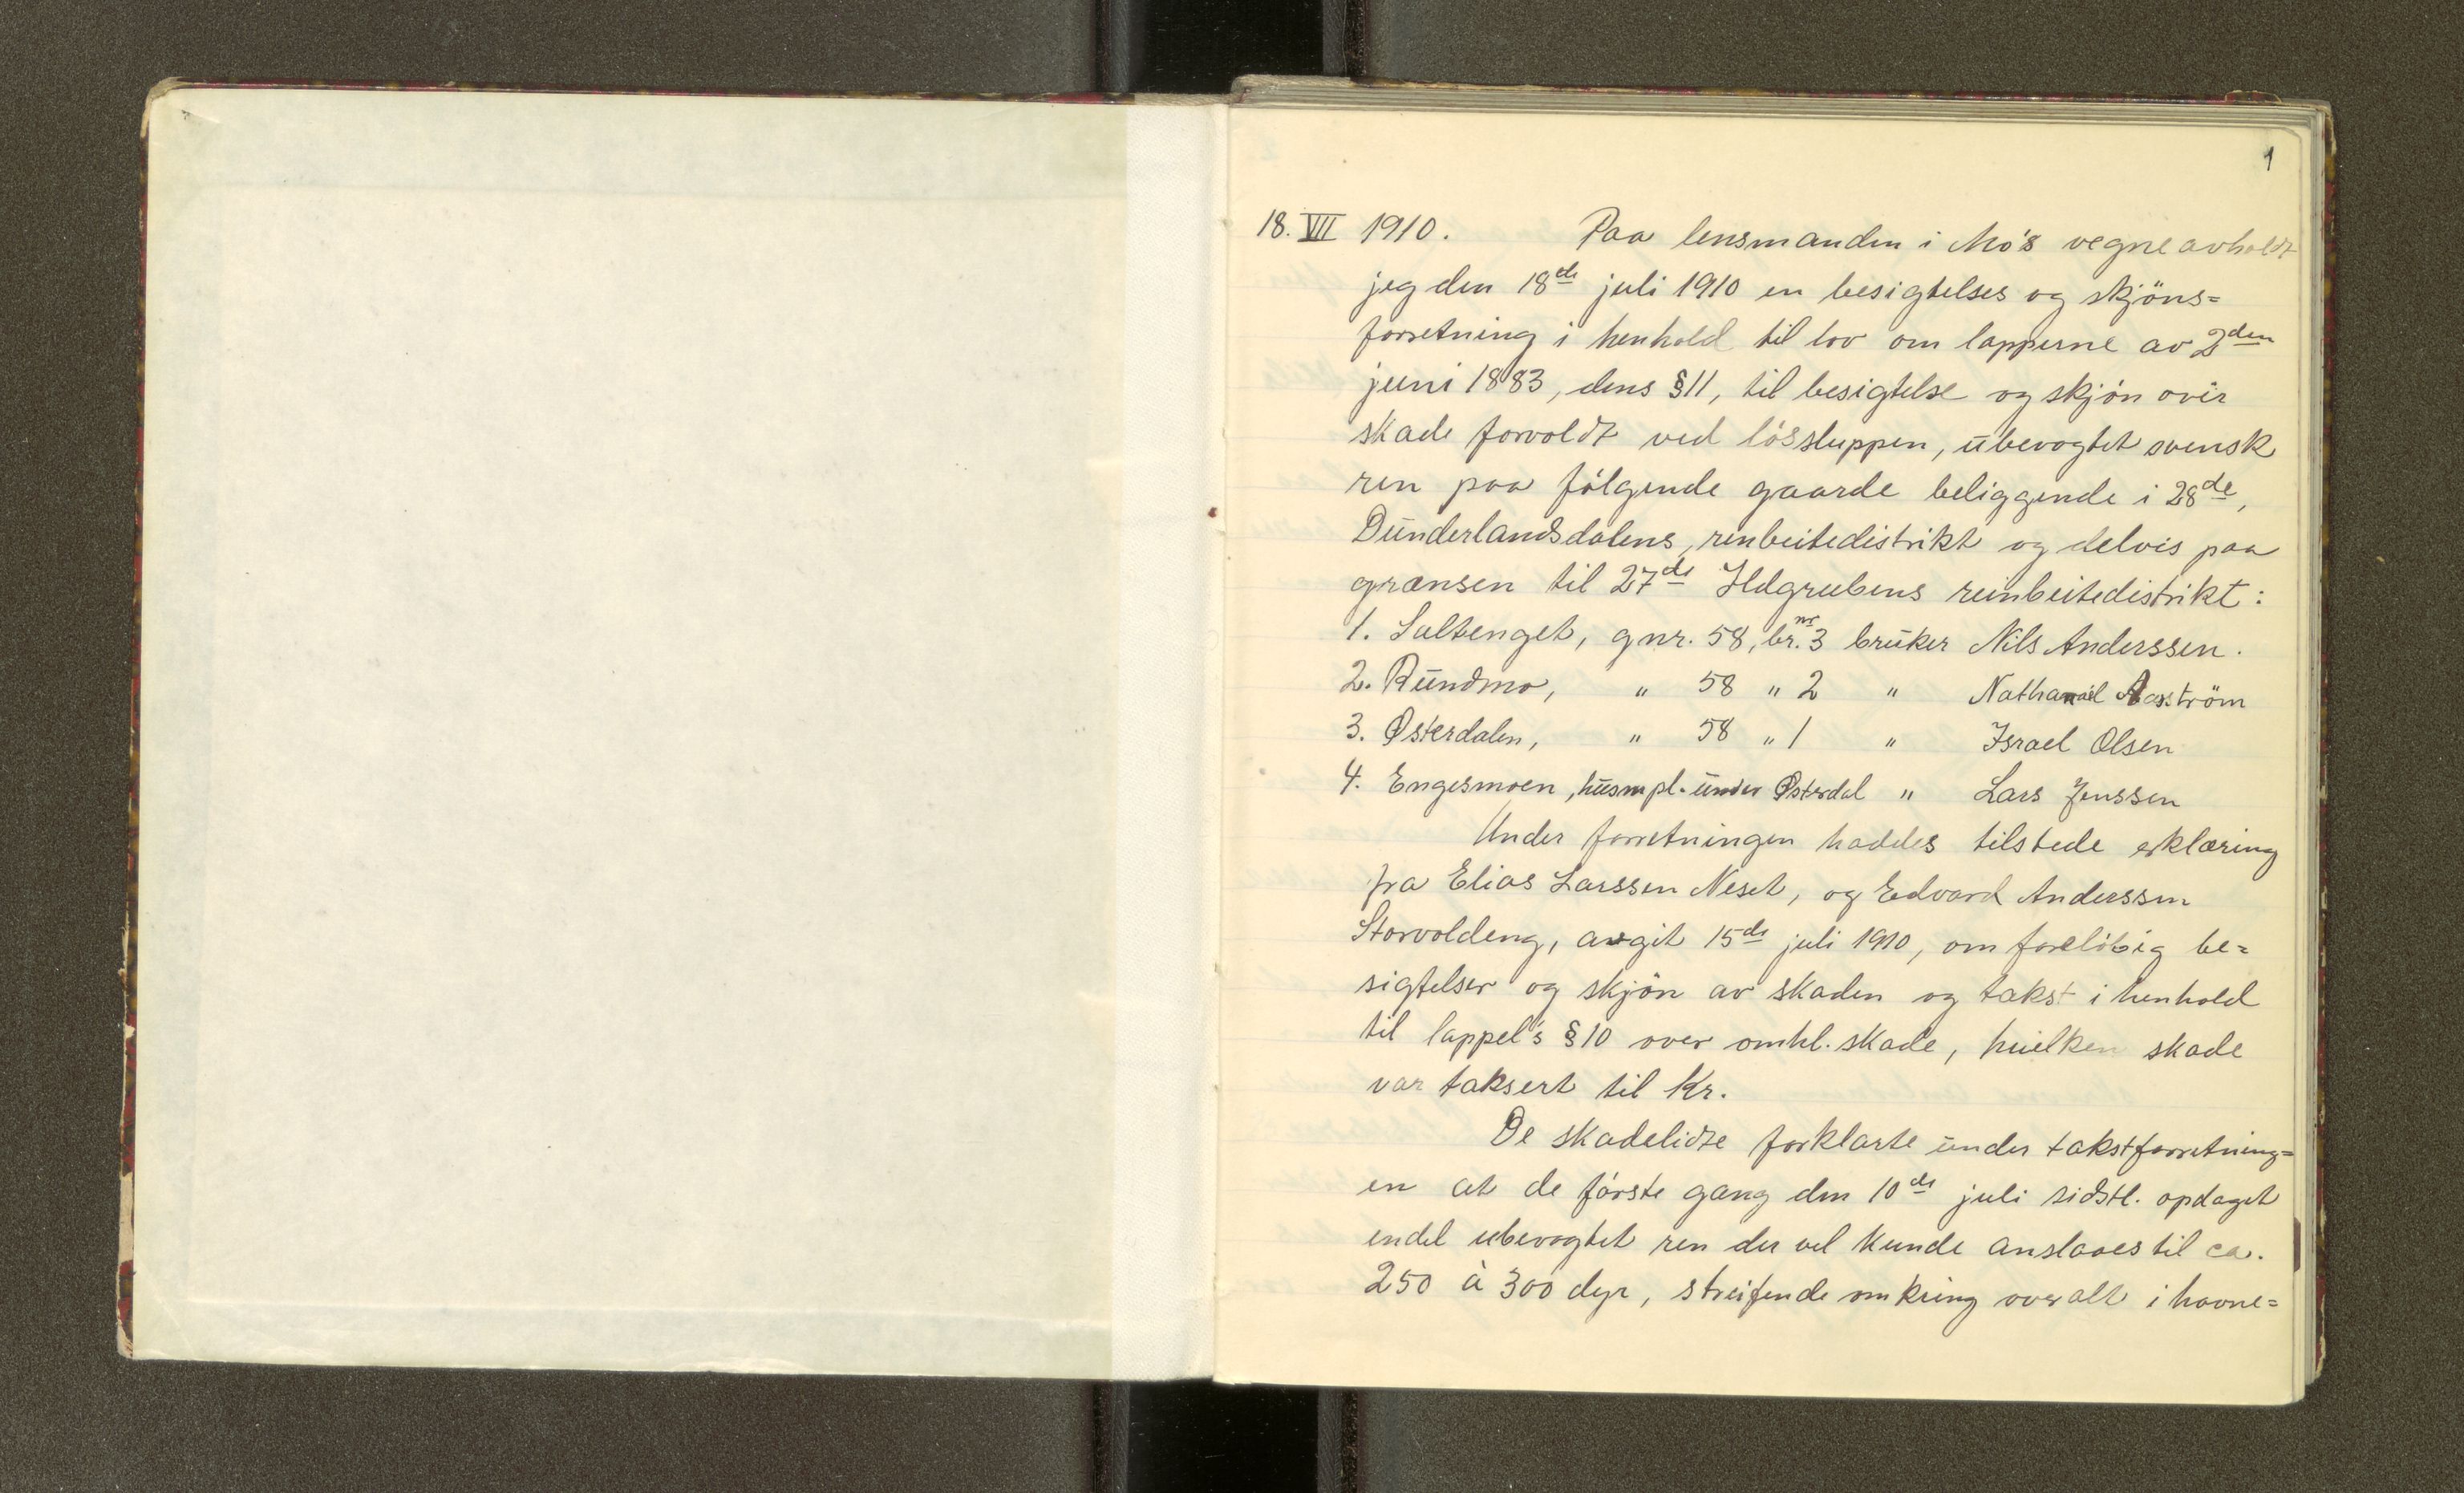 1
18. VII 1910. Paa lensmanden i Mo's vegne avholdt
jeg den 18de juli 1910 en besigtelses og skjöns=
forretning i henhold til lov om lapperne av 2den
juni 1883, dens §11, til besigtelse og skjön over
skade forvoldt ved lössluppen, ubevogtet svensk
ren paa fölgende gaarde beliggende i 28de,
Dunderlandsdalens, renbeitedistrikt og delvis paa
grænsen til 27de Ildgrubens reinbeitedistrikt:
1. Saltenget, gnr. 58, br.nr 3 bruker Nils Anderssen.
2. Rundmo, " 58 " 2 " Nathanael Aaström
3. Østerdalen, " 58 " 1 " Israel Olsen
4. Engesmoen, husmpl. under Østerdal " Lars Jenssen
Under forretningen haddes tilstede erklæring
fra Elias Larssen Neset, og Edvard Anderssen
Storvoldeng, avgit 15de juli 1910, om forelöbig be=
sigtelser og skjön av skaden og takst i henhold
til lappel's §10 over omhl. skade, hvilken skade
var taksert til Kr.
De skadelidte forklarte under takstforretning=
en at de förste gang den 10de juli sidstl. opdaget
endel ubevogtet ren der vel kunde anslaaes til ca.
250 à 300 dyr, streifende omkring overalt i havne=